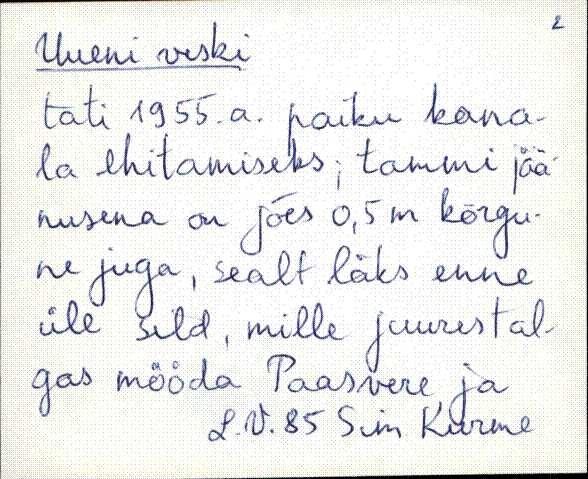 2
Uueni veski
tati 1955.a. paiku kana-
la ehitamiseks; tammi jää-
nusena on jões 0,5 m kõrgu-
ne juga, sealt läks enne
üle sild, mille juurest al-
gas mööda Paasvere ja
L.V.85 Sim Kurme